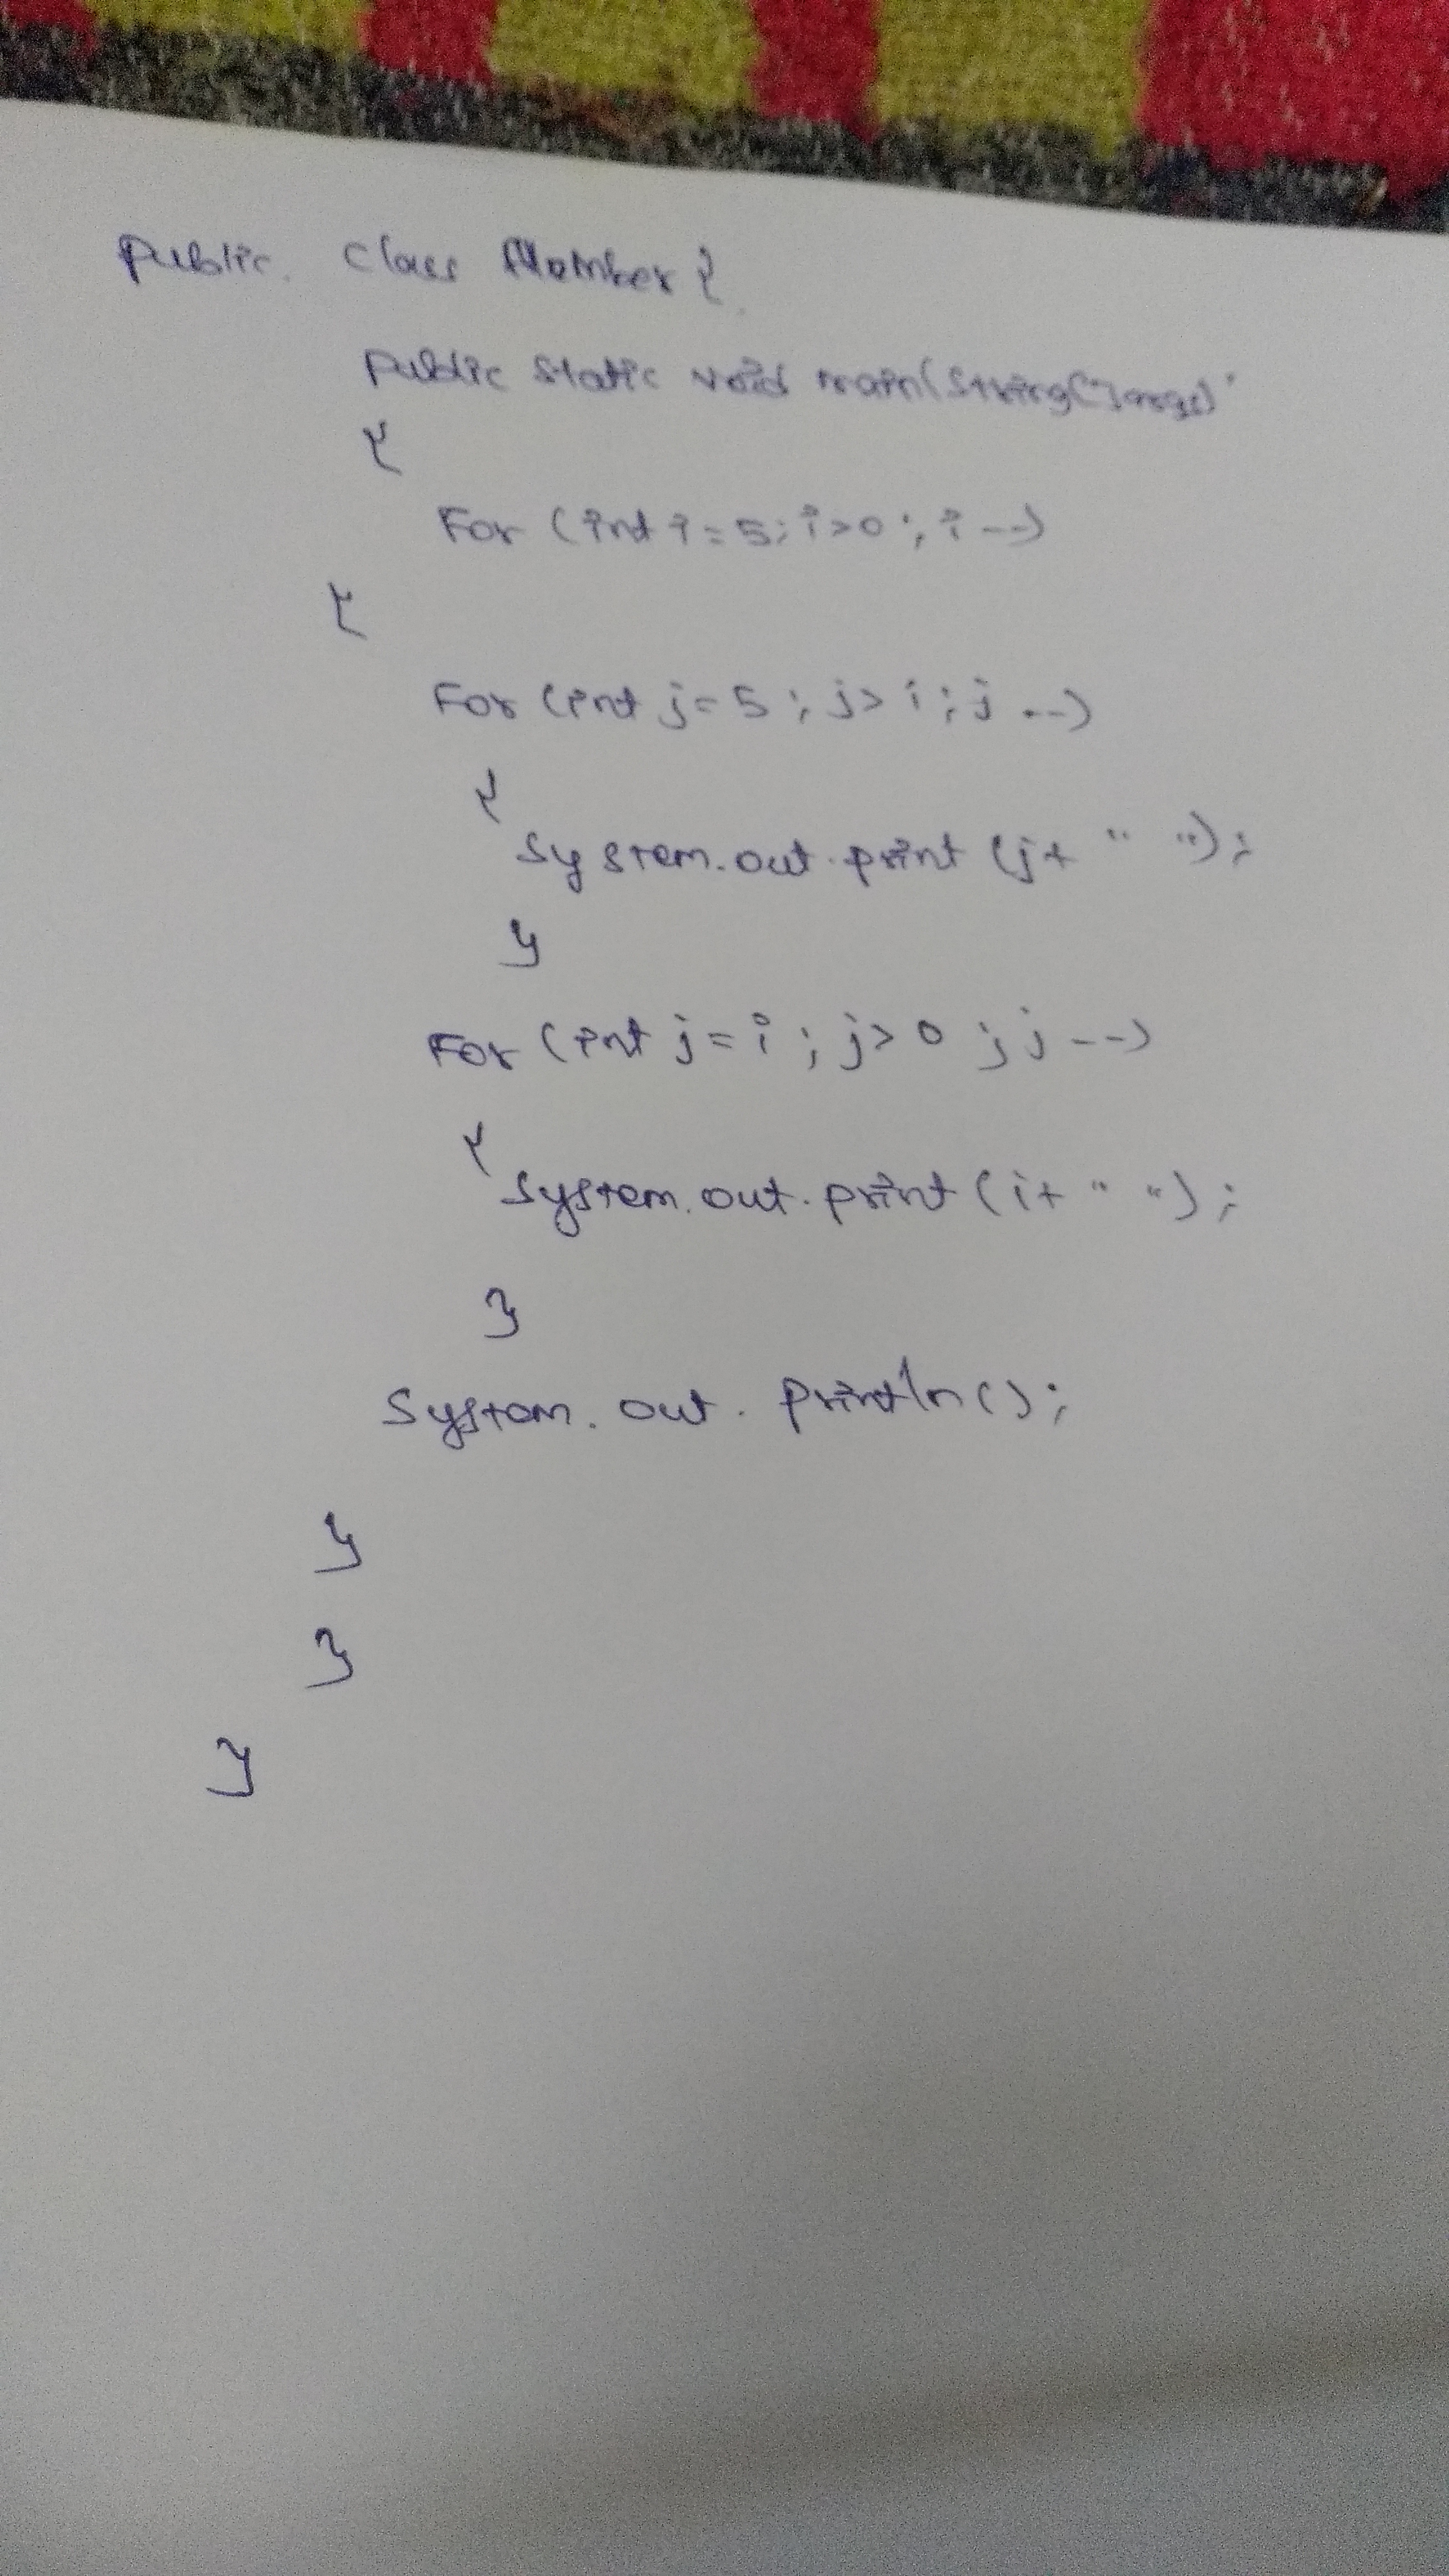 public class Number {
public static void main(String[] args)
{
For (int i = 5; i>0; i--)
{
For (int j = 5; j> i; j--)
{
System.out.print (j+ " ");
}
For (int j = i; j> 0; j--)
{
System.out.print (i+ " ");
}
System.out.println();
}
}
}